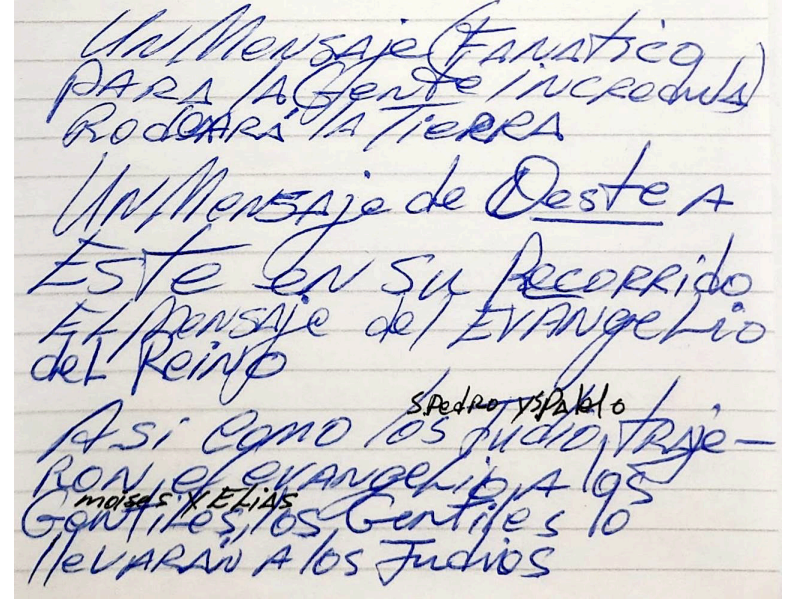 Un Mensaje (Fanatico
PARA la Gente incredula)
RodeARÁ la TierRA
Un Mensaje de Oeste A
Este en su Recorrido
El Mensaje del EVANgelio
del Reino
S. Pedro y S Pablo
Asi como los judio, TRAje-
RON el evangelio A los
moises y ELIAS
Gentiles, los Gentiles lo
llevARÁN A los Judios